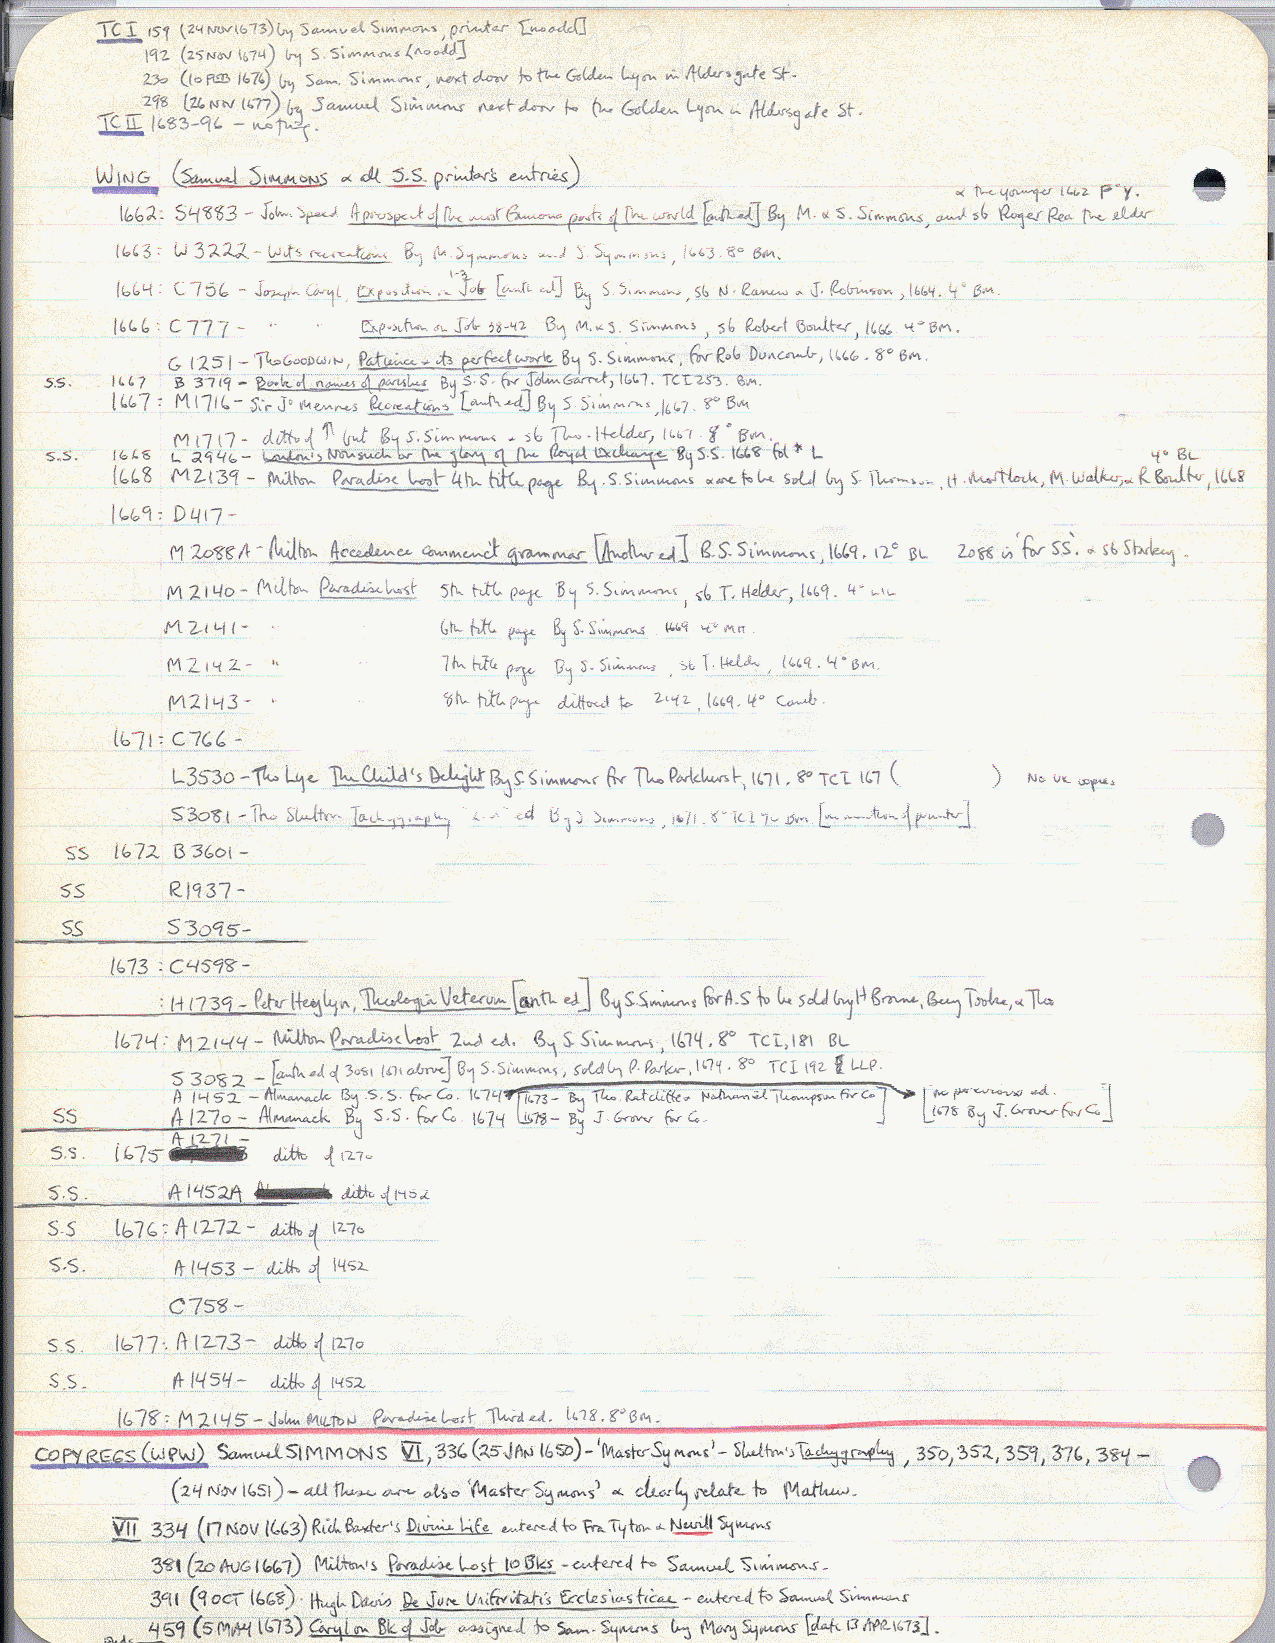 TC I 159 (24 NOV 1673) by Samuel Simmons, printer [no add]
192 (25 NOV 1674) by S. Simmons [no add]
230 (10 FEB 1676) by Sam. Simmons, next door to the Golden Lyon in Aldersgate St.
298 (26 NOV 1677) by Samuel Simmons next door to the Golden Lyon in Aldersgate St.
TC II 1683-96 - nothing.
WING (Samuel SIMMONS & all S.S. printer's entries)
& the younger 1662 F° Y.
1662: S4883 - John Speed A prospect of the most famous parts of the world [anth ed] By M. & S. Simmons, and sb Roger Rea the elder
1663: W3222 - Wits recreations By M. Symmons and S. Symmons, 1663. 8° BM.
1664: C756 - Joseph Caryl, Exposition on Job 1-3 [anth ed] By S. Simmons, sb N. Ranew & J. Robinson, 1664. 4° BM.
1666: C777 - " " Exposition on Job 38-42 By M. & S. Simmons, sb Robert Boulter, 1666. 4° BM.
G1251 - Tho GOODWIN, Patience & its perfect work By S. Simmons, for Rob Duncomb, 1666. 8° BM.
SS. 1667 B3719 - Book of names of parishes By S.S. for John Garret, 1667. TCI 253. BM.
1667: M1716 - Sir J° Mennes Recreations [anth ed] By S. Simmons, 1667. 8° BM
M1717 - ditto of ↑ but By S. Simmons & sb Tho. Helder, 1667. 8° BM.
S.S. 1668 L2946 - London's Nonsuch or the glory of the Royal Exchange By S.S. 1668 fol * L
4° BL
1668 M2139 - Milton Paradise Lost 4th title page By S. Simmons & are to be sold by S. Thomson, H. Mortlock, M. Walker, & R Boulter, 1668
1669: D417 -
M2088A - Milton Accedence commenc't grammar [Another ed] B. S. Simmons, 1669. 12° BL 2088 is 'for SS'. & sb Starkey.
M2140 - Milton Paradise Lost 5th title page By S. Simmons, sb T. Helder, 1669. 4°
M2141 - " " 6th title page By S. Simmons 1669 4° MH.
M2142 - " " 7th title page By S. Simmons, sb T. Helder, 1669. 4° BM.
M2143 - " " 8th title page dittoed to 2142, 1669. 4° Camb.
1671: C766 -
L3530 - Tho Lye The Child's Delight By S. Simmons for Tho Parkhurst, 1671. 8° TCI 167 ( ) No UK copies
S3081 - Tho Shelton Tachygraphy ed By S Simmons, 1671. 8° TCI BM. [no mention of printer]
SS 1672 B3601 -
SS R1937 -
SS S3095 -
1673: C4598 -
: H1739 - Peter Heylyn, Theologia Veterum [anth ed] By S. Simmons for A.S to be sold by H Brome, Benj Tooke, & Tho
1674: M2144 - Milton Paradise Lost 2nd ed. By S. Simmons, 1674. 8° TCI, 181 BL
S3082 - [anth ed of 3081 1671 above] By S. Simmons, sold by P. Parker, 1674. 8° TCI 192 LLP.
A1452 - Almanack By S.S. for Co. 1674 [1673 - By Tho. Ratcliffe & Nathaniel Thompson for Co] [no previous ed.
SS A1270 - Almanack By S.S. for Co 1674 [1678 - By J. Grover for Co.] 1678 By J. Grover for Co]
A1271 -
S.S. 1675 ditto of 1270
S.S. A1452A ditto of 1452
S.S 1676: A1272 - ditto of 1270
S.S. A1453 - ditto of 1452
C758 -
S.S. 1677: A1273 - ditto of 1270
S.S. A1454 - ditto of 1452
1678: M2145 - John MILTON Paradise Lost Third ed. 1678. 8° BM.
COPY REGS (WPW) Samuel SIMMONS VI, 336 (25 JAN 1650) - 'Master Symons' - Shelton's Tachygraphy, 350, 352, 359, 376, 384 -
(24 NOV 1651) - all these are also 'Master Symons' & clearly relate to Mathew.
VII 334 (17 NOV 1663) Rich Baxter's Divine Life entered to Fra Tyton & Nevill Symons
381 (20 AUG 1667) Milton's Paradise Lost 10 Bks - entered to Samuel Simmons.
391 (9 OCT 1668). Hugh Davis De Jure Uniformitatis Ecclesiasticae - entered to Samuel Simmons
459 (5 MAY 1673) Caryl on Bk of Job assigned to Sam. Symons by Mary Symons [date 13 APR 1673].